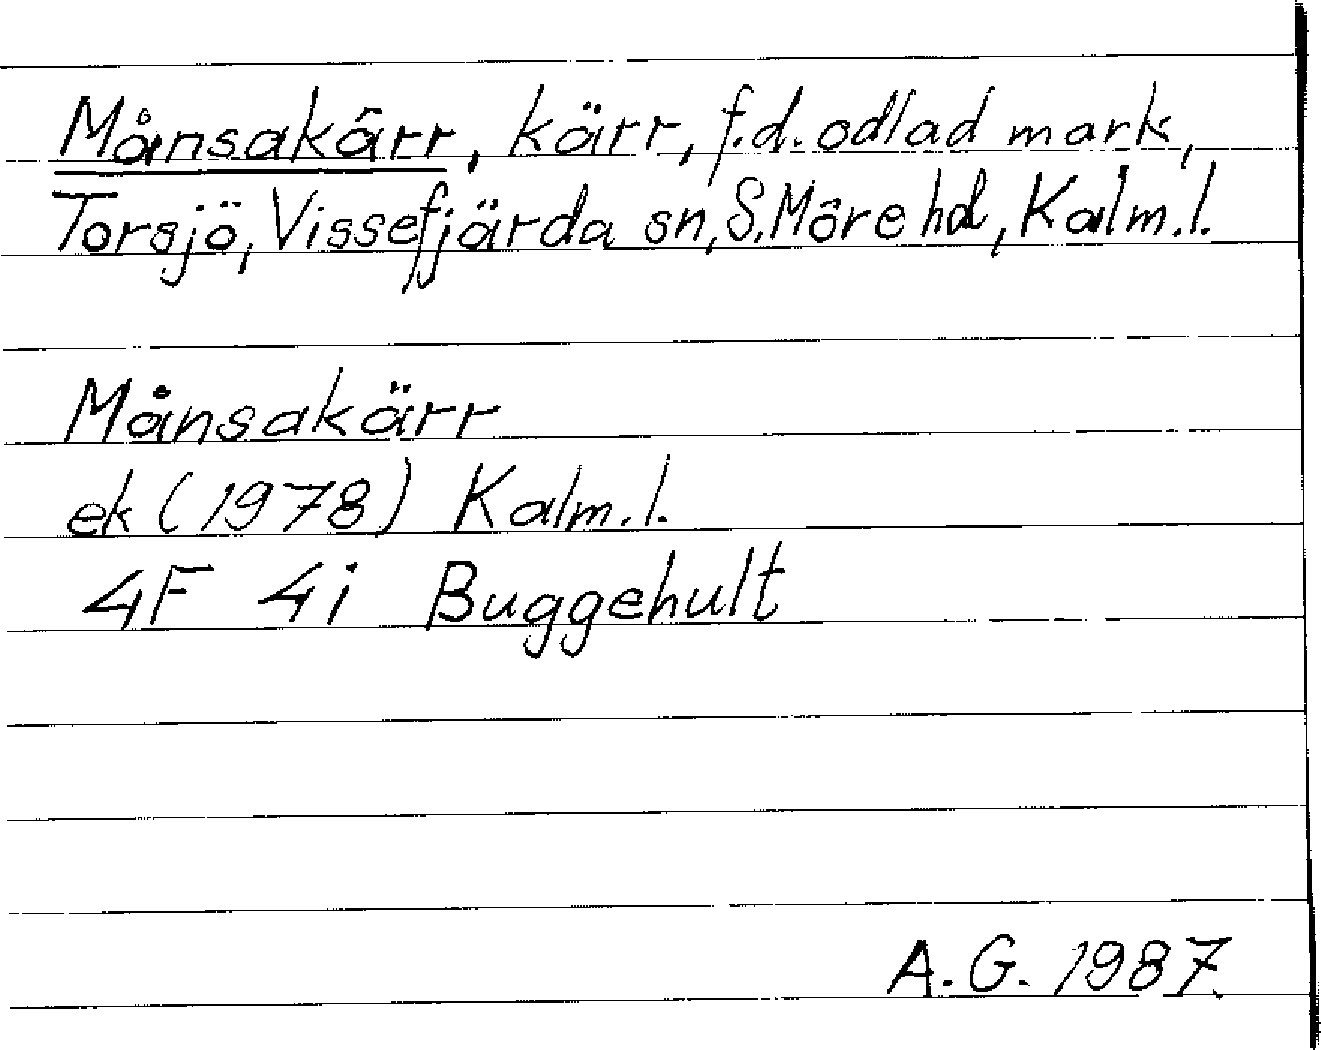 Månsakärr, kärr, f.d. odlad mark,
Torsjö, Vissefjärda sn, S. Möre hd, Kalm. l.
Månsakärr
ek (1978) Kalm. l.
4F 4i Buggehult
A.G. 1987.